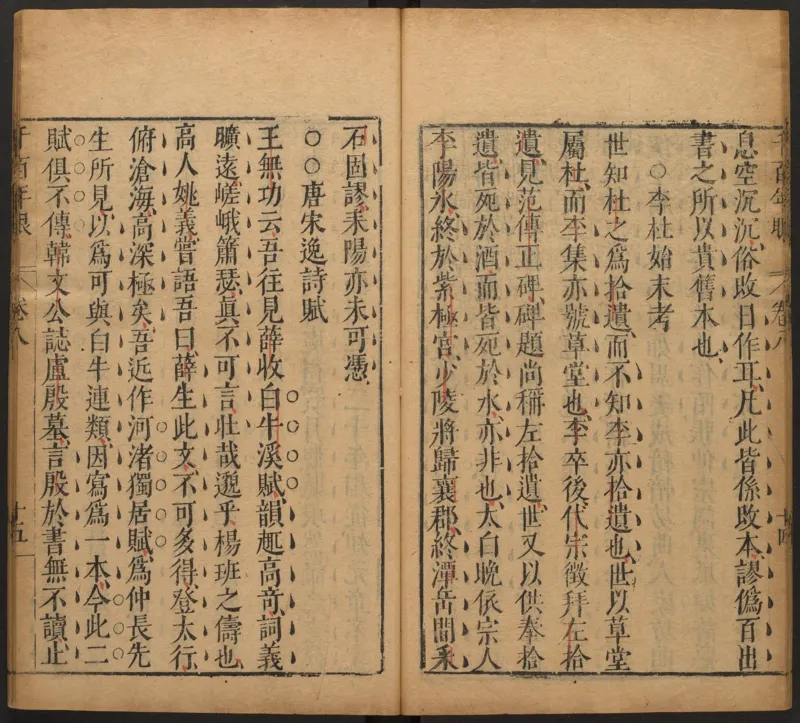 息空沉沉俗改日作耳凡此皆係改本謬僞百出
書之所以貴舊本也
○李杜始末考
世知杜之爲拾遺而不知李亦拾遺也世以草堂
屬杜而李集亦號草堂也李卒後代宗徵拜左拾
遺見范傳正碑碑題尚稱左拾遺世又以供奉拾
遺皆死於酒而皆死於水亦非也太白晚依宗人
李陽氷終於紫極宮少陵將歸襄郡終潭岳間采
卷八
十四
石固謬耒陽亦未可憑
○○唐宋逸詩賦
王無功云吾往見薛收白牛溪賦韻趣高奇詞義
曠遠嵯峨簫瑟真不可言壯哉邈乎楊班之儔也
高人姚義嘗語吾曰薛生此文不可多得登太行
俯滄海高深極矣吾近作河渚獨居賦爲仲長先
生所見以爲可與白牛連類因寫爲一本今此二
賦俱不傳韓文公誌盧殷墓言殷於書無不讀止
千百年眼
卷八
十五